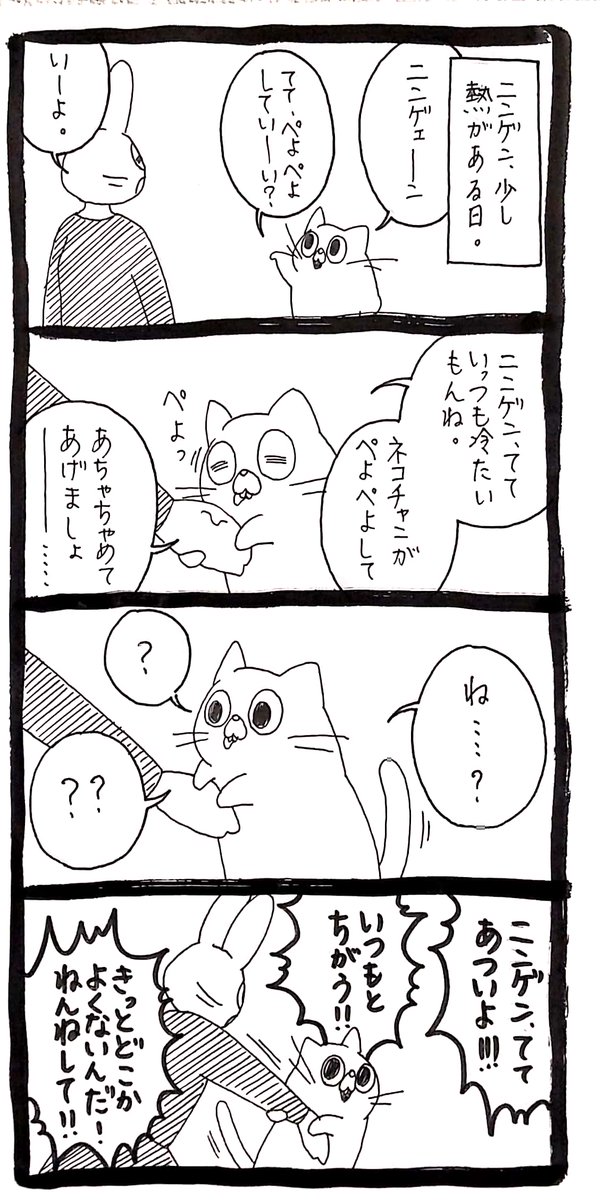 ニンゲン、少し
熱がある日。
ニンゲェーン
てて、ぺよぺよ
してい一い？
いーよ。
ニンゲン、てて
いっつも冷たい
もんね。
ネコチャンが
ぺよぺよして
ぺよっ
あちゃちゃめて
あげましょ
ー……
ね……？
？
？？
ニンゲン、てて
あついよ!!!
いつもと
ちがう!!
きっとどこか
よくないんだ！
ねんねして!!